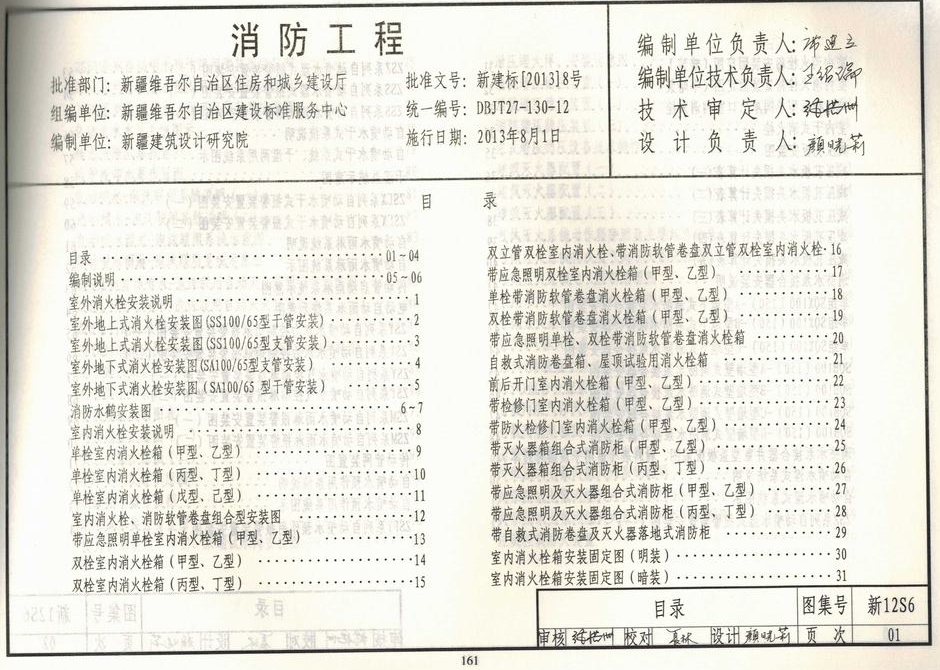 消防工程
批准部门：新疆维吾尔自治区住房和城乡建设厅
组编单位：新疆维吾尔自治区建设标准服务中心
编制单位：新疆建筑设计研究院
批准文号：新建标[2013]8号
统一编号：DBJT27-130-12
施行日期：2013年8月1日
编制单位负责人：
编制单位技术负责人：
技术审定人：
设计负责人：颜晓莉
目 录
目录 01~04
编制说明 05~06
室外消火栓安装说明 1
室外地上式消火栓安装图(SS100/65型干管安装) 2
室外地上式消火栓安装图(SS100/65型支管安装) 3
室外地下式消火栓安装图(SA100/65型支管安装) 4
室外地下式消火栓安装图(SA100/65 型干管安装) 5
消防水鹤安装图 6~7
室内消火栓安装说明 8
单栓室内消火栓箱(甲型、乙型) 9
单栓室内消火栓箱(丙型、丁型) 10
单栓室内消火栓箱(戊型、己型) 11
室内消火栓、消防软管卷盘组合型安装图 12
带应急照明单栓室内消火栓箱(甲型、乙型) 13
双栓室内消火栓箱(甲型、乙型) 14
双栓室内消火栓箱(丙型、丁型) 15
双立管双栓室内消火栓、带消防软管卷盘双立管双栓室内消火栓 16
带应急照明双栓室内消火栓箱(甲型、乙型) 17
单栓带消防软管卷盘消火栓箱(甲型、乙型) 18
双栓带消防软管卷盘消火栓箱(甲型、乙型) 19
带应急照明单栓、双栓带消防软管卷盘消火栓箱 20
自救式消防卷盘箱、屋顶试验用消火栓箱 21
前后开门室内消火栓箱(甲型、乙型) 22
带检修门室内消火栓箱(甲型、乙型) 23
带防火检修门室内消火栓箱(甲型、乙型) 24
带灭火器箱组合式消防柜(甲型、乙型) 25
带灭火器箱组合式消防柜(丙型、丁型) 26
带应急照明及灭火器组合式消防柜(甲型、乙型) 27
带应急照明及灭火器组合式消防柜(丙型、丁型) 28
带自救式消防卷盘及灭火器落地式消防柜 29
室内消火栓箱安装固定图(明装) 30
室内消火栓箱安装固定图(暗装) 31
目录 图集号 新12S6
审核 校对 设计 颜晓莉 页次 01
161